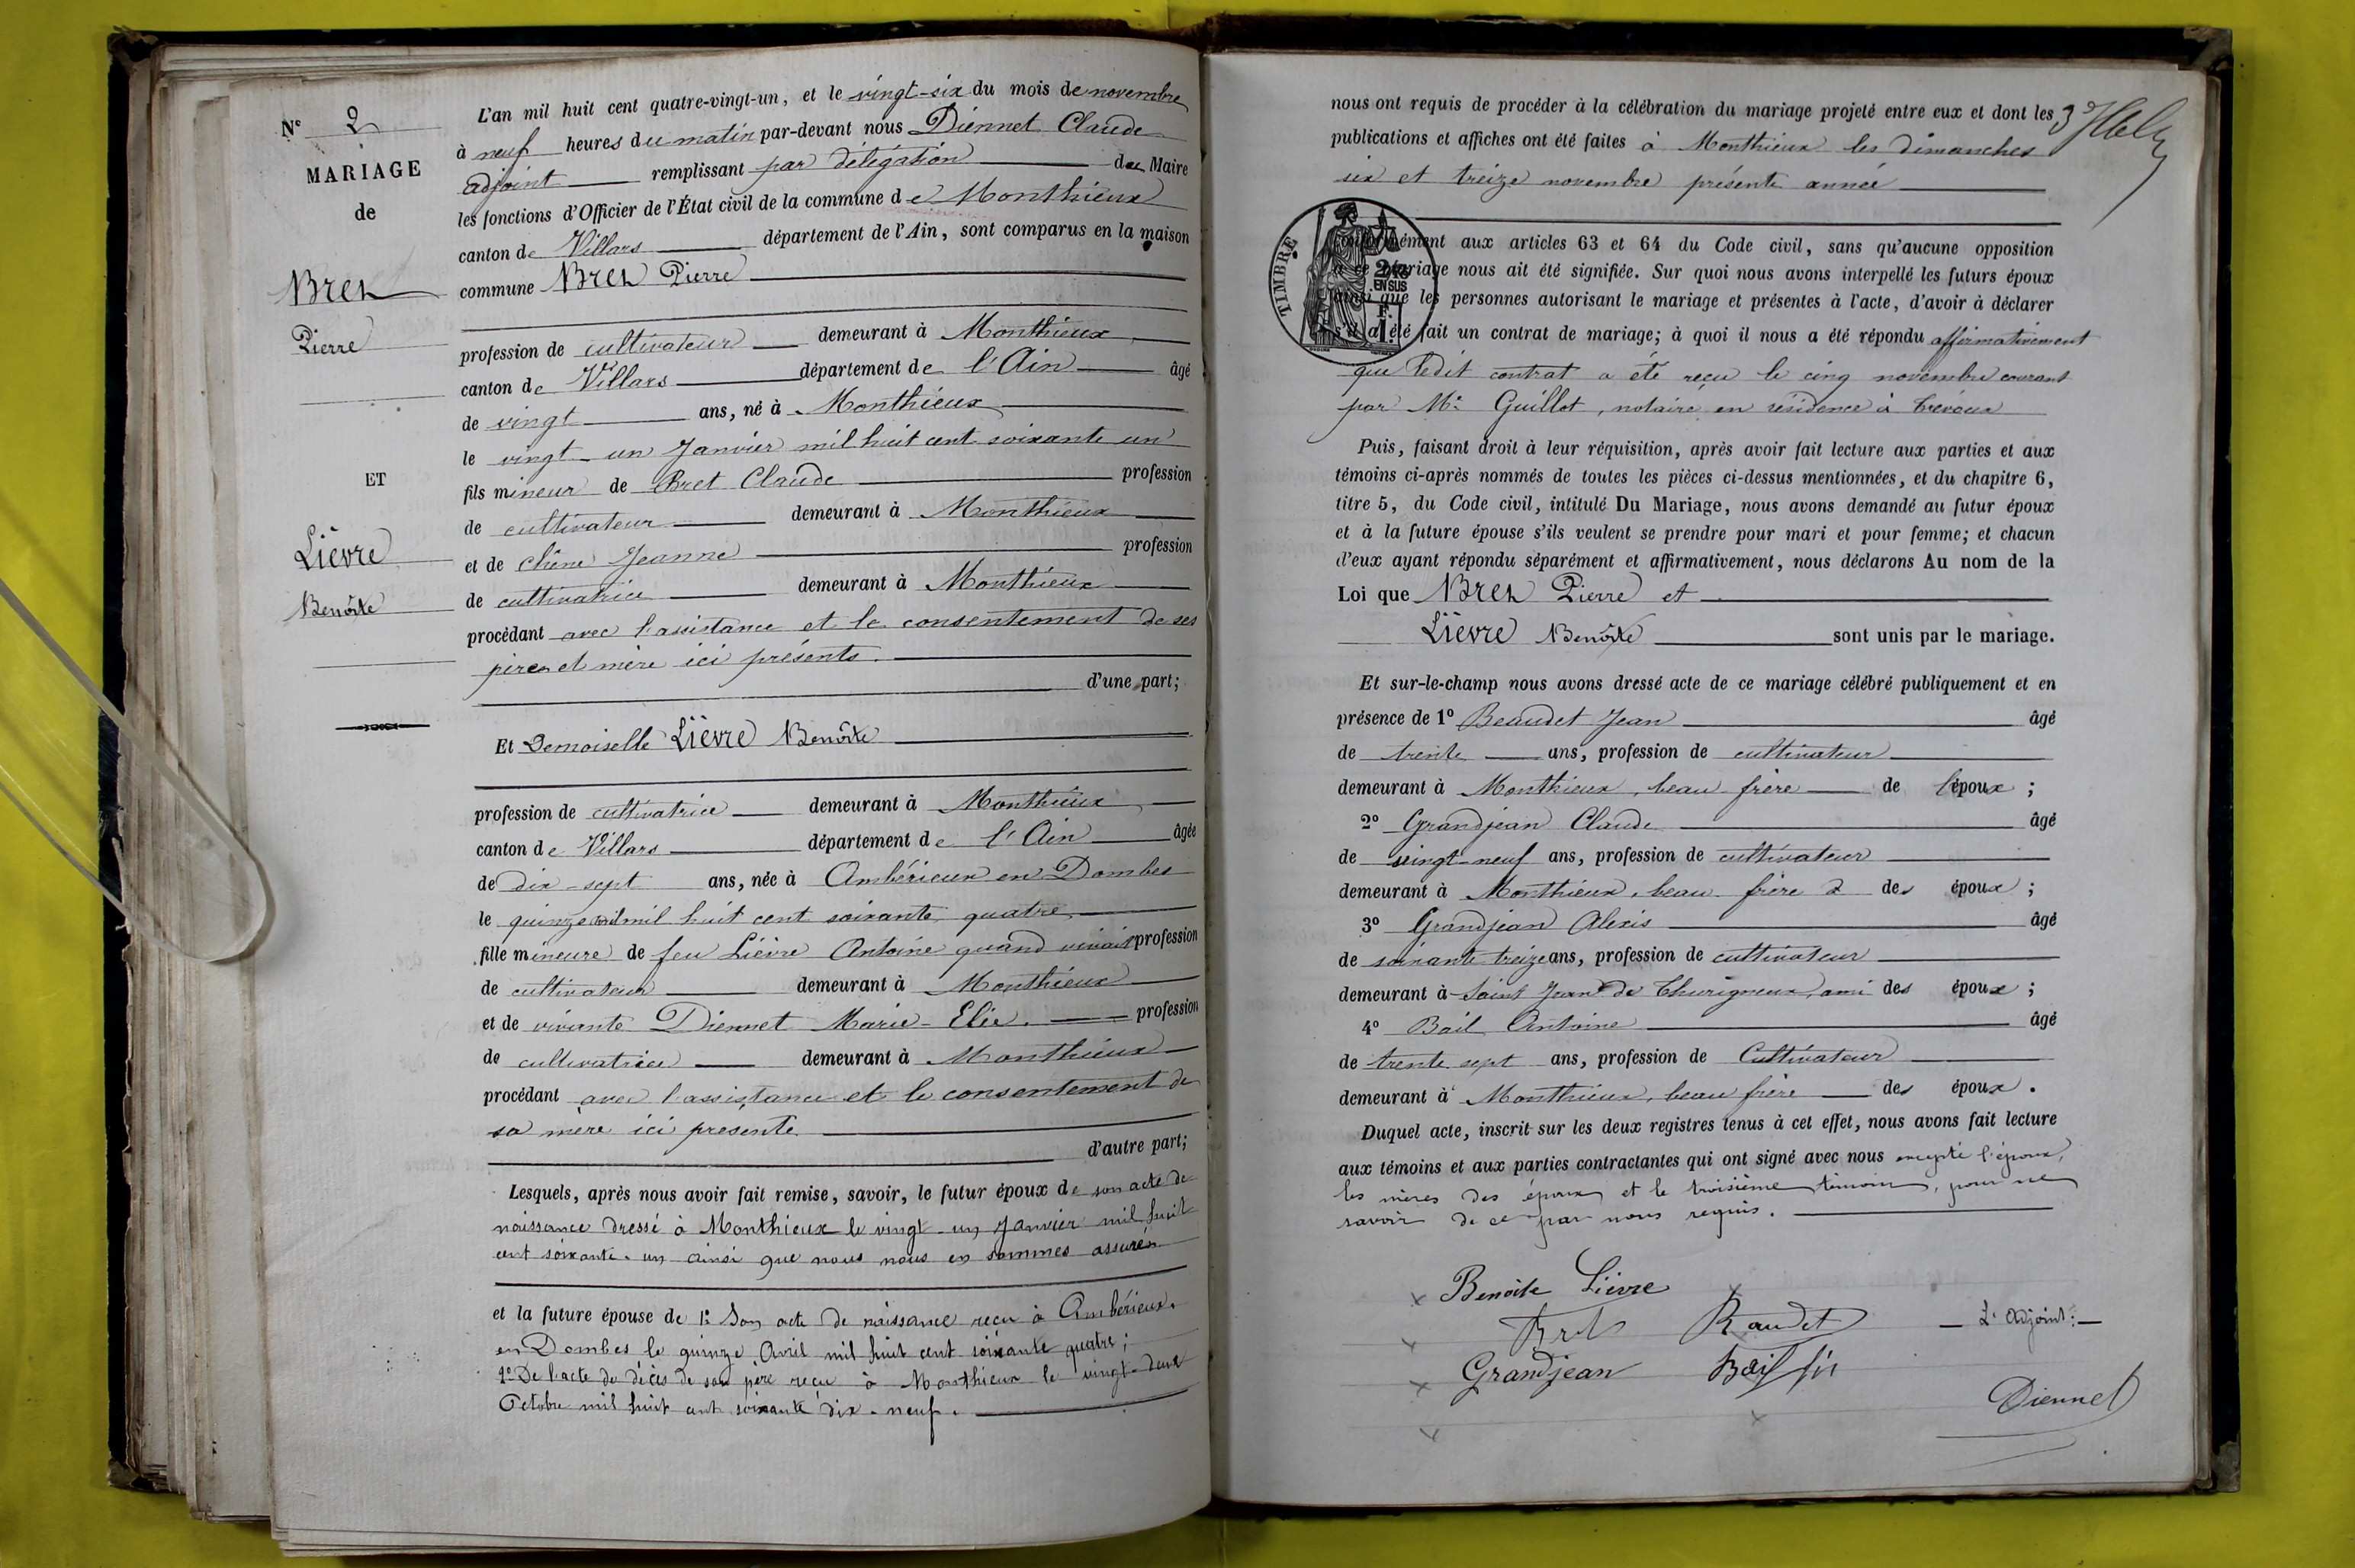 N° 2
MARIAGE
de
Bret
Pierre
ET
Lièvre
Benoîte
L'an mil huit cent quatre-vingt-un, et le vingt-six du mois de novembre
à neuf heures du matin par-devant nous Diennet Claude
adjoint remplissant par délégation du Maire
les fonctions d'Officier de l'État civil de la commune de Monthieux
canton de Villars département de l'Ain, sont comparus en la maison
commune Bret Pierre
profession de cultivateur demeurant à Monthieux
canton de Villars département de l'Ain âgé
de vingt ans, né à Monthieux
le vingt-un Janvier mil huit cent soixante un
fils mineur de Bret Claude profession
de cultivateur demeurant à Monthieux
et de Chêne Jeanne profession
de cultivatrice demeurant à Monthieux
procédant avec l'assistance et le consentement de ses
père et mère ici présents.
d'une part;
Et Demoiselle Lièvre Benoîte
profession de cultivatrice demeurant à Monthieux
canton de Villars département de l'Ain âgée
de dix-sept ans, née à Ambérieux en Dombes
le quinze avril mil huit cent soixante quatre
fille mineure de feu Lièvre Antoine quand vivait profession
de cultivateur demeurant à Monthieux
et de vivante Diennet Marie-Elie. profession
de cultivatrice demeurant à Monthieux
procédant avec l'assistance et le consentement de
sa mère ici présente.
d'autre part;
Lesquels, après nous avoir fait remise, savoir, le futur époux de son acte de
naissance dressé à Monthieux le vingt-un Janvier mil huit
cent soixante-un ainsi que nous nous en sommes assurés
et la future épouse de 1° Son acte de naissance reçu à Ambérieux-
en Dombes le quinze Avril mil huit cent soixante quatre;
2° De l'acte de décès de son père reçu à Monthieux le vingt-deux
Octobre mil huit cent soixante dix-neuf.
nous ont requis de procéder à la célébration du mariage projeté entre eux et dont les
publications et affiches ont été faites à Monthieux les dimanches
six et treize novembre présente année
TIMBRE
2/10
EN SUS
F.
1.
conformément aux articles 63 et 64 du Code civil, sans qu'aucune opposition
à ce mariage nous ait été signifiée. Sur quoi nous avons interpellé les futurs époux
ainsi que les personnes autorisant le mariage et présentes à l'acte, d'avoir à déclarer
s'il a été fait un contrat de mariage; à quoi il nous a été répondu affirmativement
que ledit contrat a été reçu le cinq novembre courant
par Me Guillot, notaire en résidence à Trévoux
Puis, faisant droit à leur réquisition, après avoir fait lecture aux parties et aux
témoins ci-après nommés de toutes les pièces ci-dessus mentionnées, et du chapitre 6,
titre 5, du Code civil, intitulé Du Mariage, nous avons demandé au futur époux
et à la future épouse s'ils veulent se prendre pour mari et pour femme; et chacun
d'eux ayant répondu séparément et affirmativement, nous déclarons Au nom de la
Loi que Bret Pierre et
Lièvre Benoîte sont unis par le mariage.
Et sur-le-champ nous avons dressé acte de ce mariage célébré publiquement et en
présence de 1° Beaudet Jean âgé
de trente ans, profession de cultivateur
demeurant à Monthieux, beau frère de l'époux;
2° Grandjean Claude âgé
de vingt-neuf ans, profession de cultivateur
demeurant à Monthieux, beau frère des époux;
3° Grandjean Alexis âgé
de soixante treize ans, profession de cultivateur
demeurant à Saint Jean de Thurigneux, ami des époux;
4° Bail Antoine âgé
de trente sept ans, profession de Cultivateur
demeurant à Monthieux, beau frère des époux.
Duquel acte, inscrit sur les deux registres tenus à cet effet, nous avons fait lecture
aux témoins et aux parties contractantes qui ont signé avec nous excepté l'époux,
les mères des époux et le troisième témoin, pour ne
savoir de ce par nous requis.
Benoîte Lièvre
Bret Baudet L'adjoint:
Grandjean Bail fils
Diennet